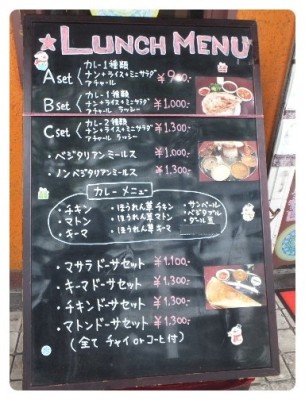 ★LUNCH MENU
A set カレー1種類
ナン+ライス+ミニサラダ
アチャール
B set カレー1種類 ¥1.000-
ナン+ライス+ミニサラダ
アチャール ラッシー
C set カレー2種類 ¥1.300-
ナン+ライス+ミニサラダ
アチャール ラッシー
・ベジタリアンミールス ¥1.000-
・ノンベジタリアンミールス ¥1.300-
カレーメニュー
・チキン ・ほうれん草チキン ・サンバール
・マトン ・ほうれん草マトン ・ベジタブル
・キーマ ・ほうれん草キーマ ・ダール豆
・マサラドーサセット ¥1.100-
・キーマドーサセット ¥1.300-
・チキンドーサセット ¥1.300-
・マトンドーサセット ¥1.300-
(全て チャイorコーヒ付)